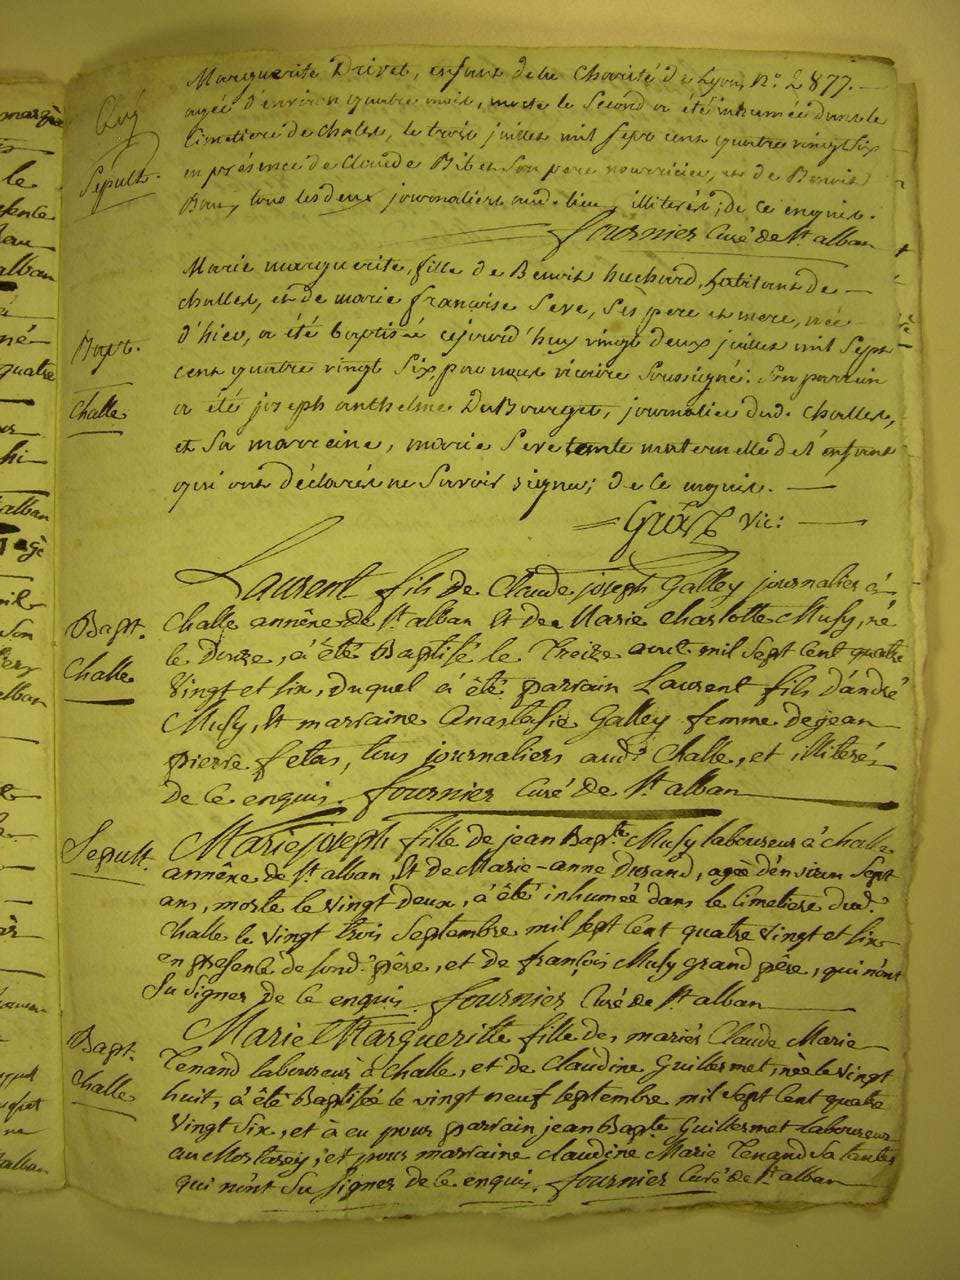 Marguerite Drivet, enfant de la Charité de Lyon, N.º 2877. —
agée d'environ quatre mois, morte le Second a été inhumée dans le
Sepult.
Cimetiere de Challes, le trois juillet mil Sept cent quatre vingt six
en présence de Claude Bibet son pere nourricier, et de Benoit
tous les deux journaliers aud. lieu, illiterés; de ce enquis.
fournier Curé de St. alban
Marie marguerite, fille de Benoit huchard, habitant de —
challes, et de marie françoise Seve, Ses pere et mere, née
Bapt.
d'hier, a été baptisé cejourd'huy vingt deux juillet mil Sept
cent quatre vingt Six, par nous vicaire Soussigné: Son parrain
Challe
a été joseph anthelme DuBourget, journalier dud. Challes,
et Sa marraine, marie Seve tante maternelle de l'enfant
qui ont déclarés ne Savoir signer; de ce enquis. —
Vic: —
Laurent fils de Claude joseph Galley journalier à
Bapt.
Challe annêxe de St. alban Et de Marie Charlotte Musy, né
le Douze, à été Baptisé le Treize aout mil Sept Cent quatre
Challe
Vingt et six, duquel à été parrain Laurent fils d'andré
Musy, Et marraine Anastasie Galley femme de jean
pierre fetas, tous journaliers aud. Challe, et illiterés
de Ce enquis. fournier Curé de St. alban
Sepult.
Marie joseph fille de jean Bapte. Musy laboureur à challe
annêxe de St. alban, Et de Marie-anne Durand, agée d'environ Sept
ans, morte le Vingt Deux, à été inhumée dans le Cimetiere dud.
Challe le Vingt trois Septembre mil sept Cent quatre Vingt et six
en presence de sond. père, et de françois Musy grand père, qui n'ont
Su signer de Ce enquis. fournier Curé de St. alban
Marie Marguerite fille des mariés Claude Marie
Bapt.
Tenand laboureur à Challe, et de Claudine Guillermet, née le Vingt
Challe
huit, à été Baptisée le vingt neuf septembre mil Sept Cent quatre
Vingt Six, et à eu pour parrain jean Bapte. Guillermet laboureur
au Mortarey; et pour marraine Claudine Marie Tenand Sa tante
qui n'ont Su signer de Ce enquis. fournier Curé de St. alban